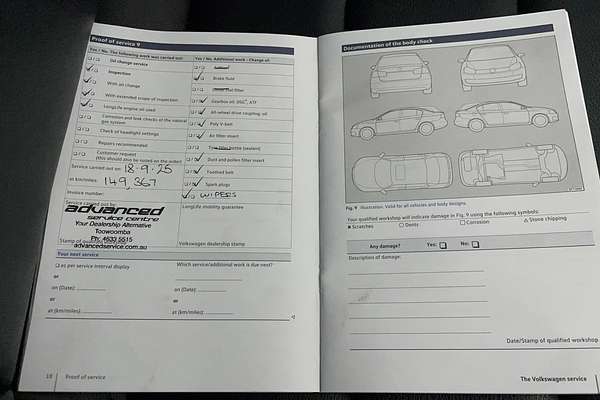 Proof of service 9
Yes / No The following work was carried out:
Oil change service
Inspection
With oil change
With extended scope of inspection
LongLife engine oil used
Corrosion and leak checks of the natural gas system
Check of headlight settings
Repairs recommended
Customer request
(this should also be noted on the order)
Service carried out on: 18-9-25
at km/miles: 149,367
Invoice number:
Service carried out by:
advanced
service centre
Your Dealership Alternative
Toowoomba
Ph: 4633 5515
advancedservice.com.au
Stamp of
Yes / No Additional work - Change of:
Brake fluid
filter
Gearbox oil: DSG, ATF
All-wheel drive coupling oil
Poly V-belt
Air filter insert
(sealant)
Dust and pollen filter insert
Toothed belt
Spark plugs
WIPERS
LongLife mobility guarantee
Volkswagen dealership stamp
Your next service
as per service interval display
or
on (Date):
or
at (km/miles):
Which service/additional work is due next?
on (Date):
or
at (km/miles):
18 Proof of service
Documentation of the body check
Fig. 9 Illustration. Valid for all vehicles and body designs.
Your qualified workshop will indicate damage in Fig. 9 using the following symbols:
Scratches
Dents
Corrosion
Stone chipping
Any damage? Yes: No
Description of damage:
Date/Stamp of qualified workshop
The Volkswagen service